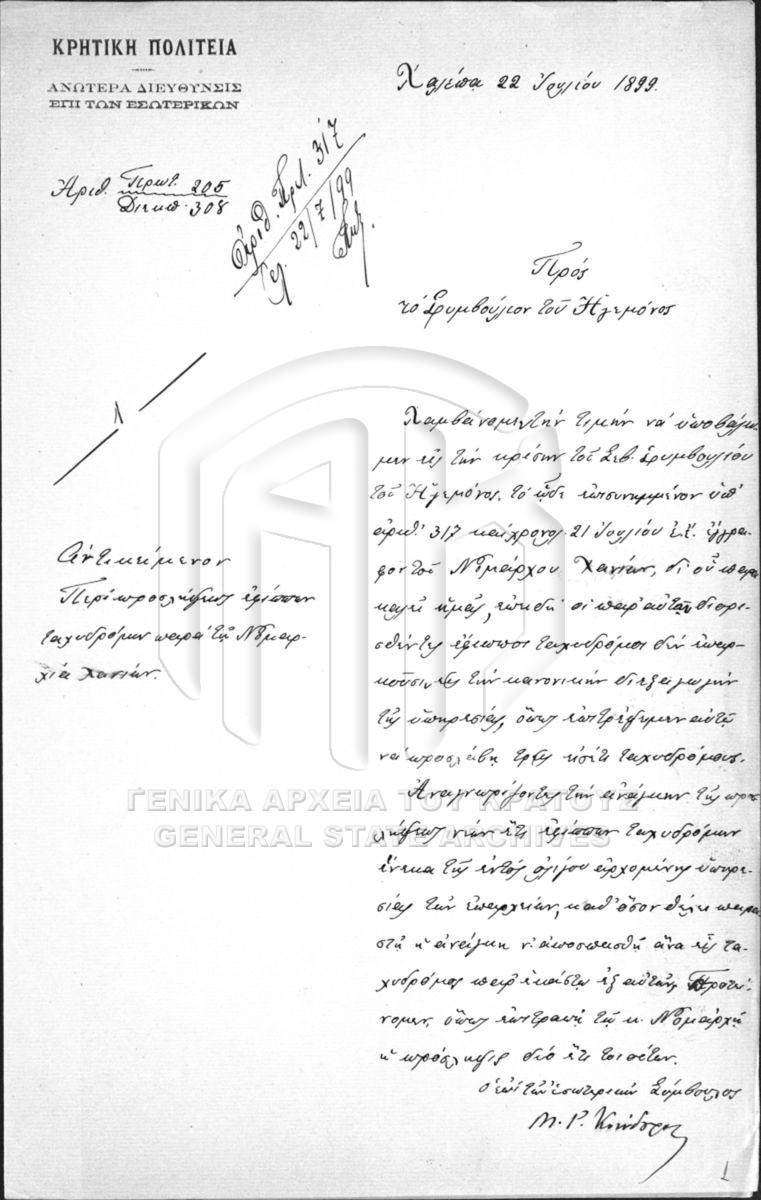 ΚΡΗΤΙΚΗ ΠΟΛΙΤΕΙΑ
ΑΝΩΤΕΡΑ ΔΙΕΥΘΥΝΣΙΣ
ΕΠΙ ΤΩΝ ΕΣΩΤΕΡΙΚΩΝ
Χαλέπα 22 Ἰουλίου 1899.
Ἀριθ. Πρωτ. 205
Διεκπ. 308
Ἀριθ. Πρωτ. 317
22/7/99
Πρὸς
τὸ Συμβούλιον τοῦ Ἡγεμόνος
1
Ἀντικείμενον
Περὶ προσλήψεως ἐφίππων
ταχυδρόμων παρὰ τῇ Νομαρ-
χίᾳ Χανίων.
Λαμβάνομεν τὴν τιμὴν νὰ ὑποβάλω-
μεν εἰς τὴν κρίσιν τοῦ Σεβ. Συμβουλίου
τοῦ Ἡγεμόνος, τὸ ὧδε ἐπισυνημμένον ὑπ'
ἀριθ. 317 καὶ χρονολ. 21 Ἰουλίου ἐ.ἔ. ἔγγρα-
φον τοῦ Νομάρχου Χανίων, δι' οὗ παρα
καλεῖ ἡμᾶς, ἐπειδὴ οἱ παρ' αὐτῷ διορι-
σθέντες ἔφιπποι ταχυδρόμοι δὲν ἐπαρ-
κοῦσιν εἰς τὴν κανονικὴν διεξαγωγὴν
τῆς ὑπηρεσίας, ὅπως ἐπιτρέψωμεν αὐτῷ
νὰ προσλάβῃ τρεῖς εἰσέτι ταχυδρόμους.
Ἀναγνωρίζοντες τὴν ἀνάγκην τῆς προσ
λήψεως νέων ἔτι ἐφίππων ταχυδρόμων
ἕνεκα τῆς ἐντὸς ὀλίγου ἀρχομένης ὑπηρε-
σίας τῶν ἐπαρχείων, καθ' ὅσον θέλει παρα
στῇ ἡ ἀνάγκη ν' ἀποσπασθῇ ἀνὰ εἷς τα-
χυδρόμος παρ' ἑκάστῳ ἐξ αὐτῶν, Προτεί-
νομεν, ὅπως ἐπιτραπῇ τῷ κ. Νομάρχῃ
ἡ πρόσληψις δύο ἔτι τοιούτων.
Ὁ ἐπὶ τῶν ἐσωτερικῶν Σύμβουλος
Μ. Ρ. Κούνδουρος
1
ΓΕΝΙΚΑ ΑΡΧΕΙΑ ΤΟΥ ΚΡΑΤΟΥΣ
GENERAL STATE ARCHIVES